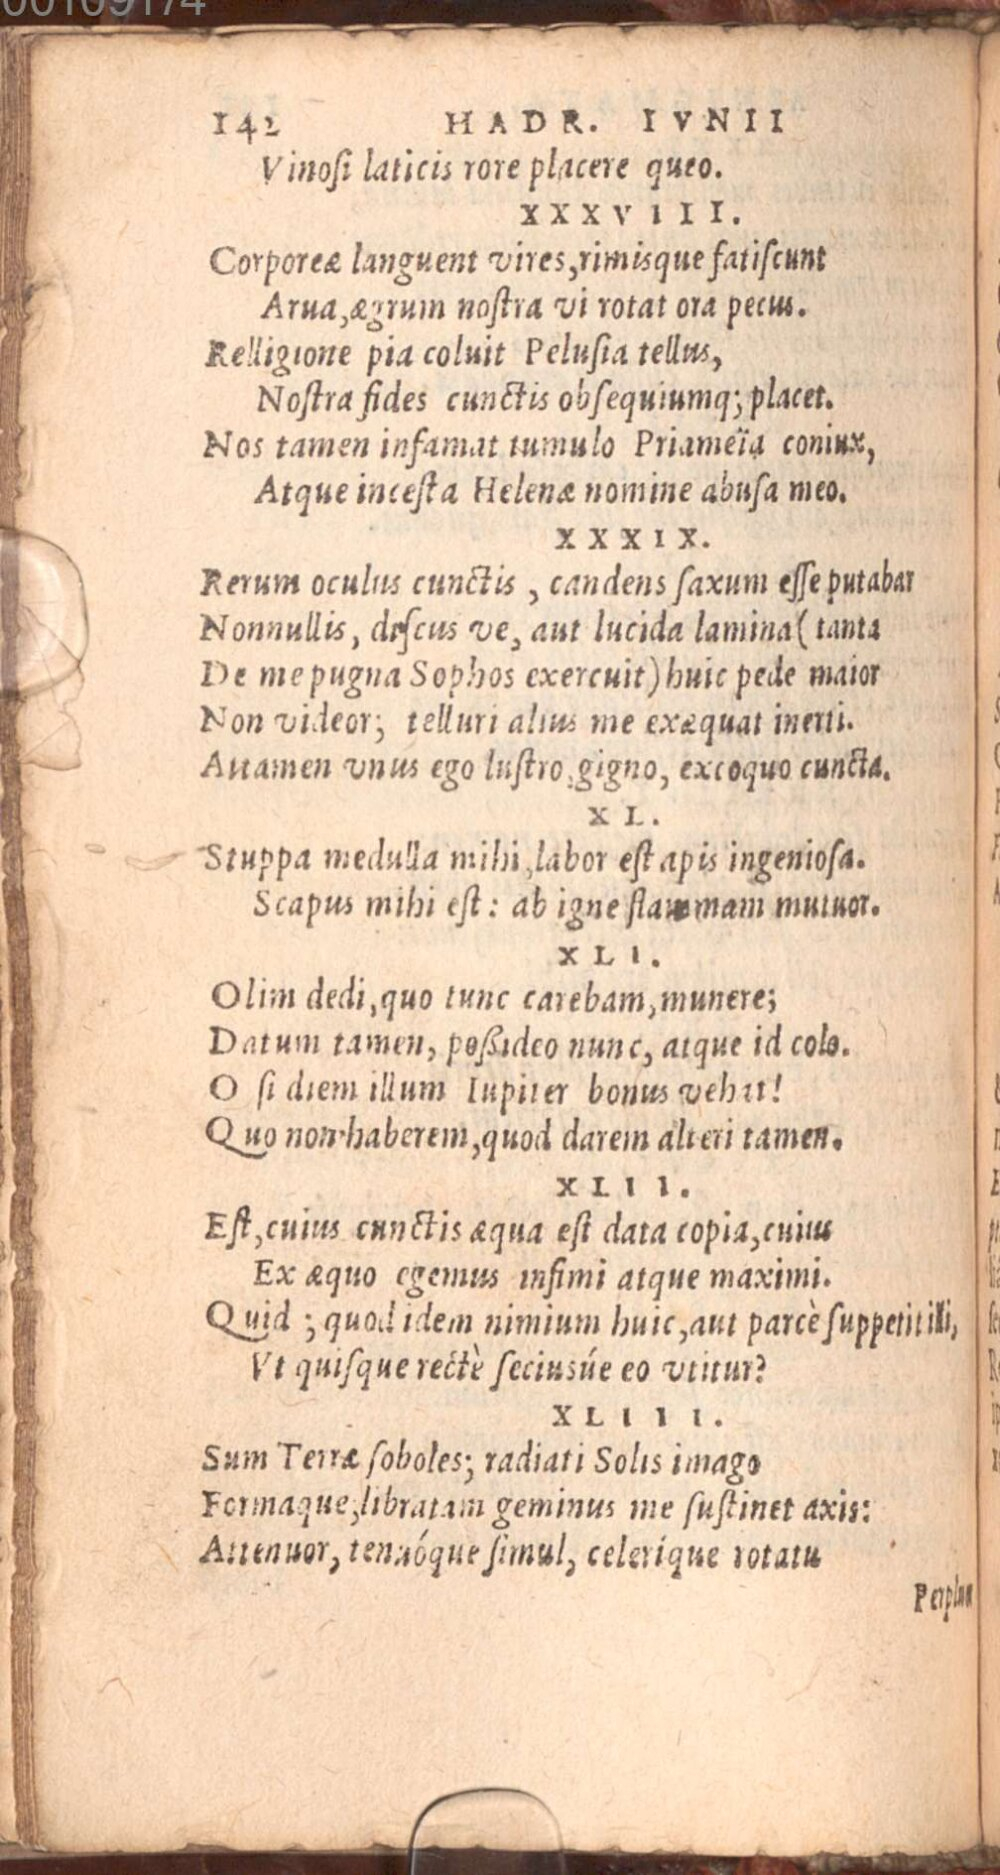 00109174
142 HADR. IVNII
Vinoſi laticis rore placere queo.
XXXVIII.
Corporeæ languent vires, rimisque fatiſcunt
Arua, ægrum noſtra vi rotat ora pecus.
Relligione pia coluit Peluſia tellus,
Noſtra fides cunctis obſequiumq; placet.
Nos tamen infamat tumulo Priameïa coniux,
Atque inceſta Helenæ nomine abuſa meo.
XXXIX.
Rerum oculus cunctis, candens ſaxum eſſe putabar
Nonnullis, diſcus ve, aut lucida lamina (tanta
De me pugna Sophos exercuit) huic pede maior
Non videor; telluri alius me exæquat inerti.
Attamen vnus ego luſtro, gigno, excoquo cuncta.
XL.
Stuppa medulla mihi, labor eſt apis ingenioſa.
Scapus mihi eſt: ab igne flammam mutuor.
XLI.
Olim dedi, quo tunc carebam, munere;
Datum tamen, poßideo nunc, atque id colo.
O ſi diem illum Iupiter bonus vehat!
Quo non haberem, quod darem alteri tamen.
XLII.
Eſt, cuius cunctis æqua eſt data copia, cuius
Ex æquo egemus infimi atque maximi.
Quid; quod idem nimium huic, aut parcè ſuppetit illi,
Vt quiſque rectè ſeciusúe eo vtitur?
XLIII.
Sum Terræ ſoboles; radiati Solis imago
Formaque, libratam geminus me ſuſtinet axis:
Attenuor, tenuóque ſimul, celeríque rotatu